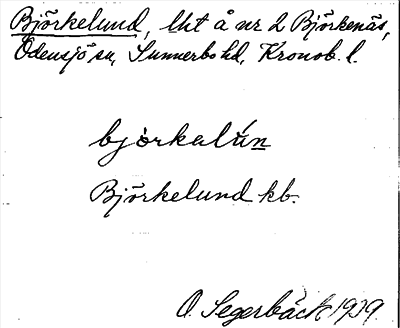 Björkelund, lht å nr 2 Björkenäs,
Odensjö sn, Sunnerbo hd, Kronob. l.
björkalún
Björkelund kb.
O. Segerbäck 1939.